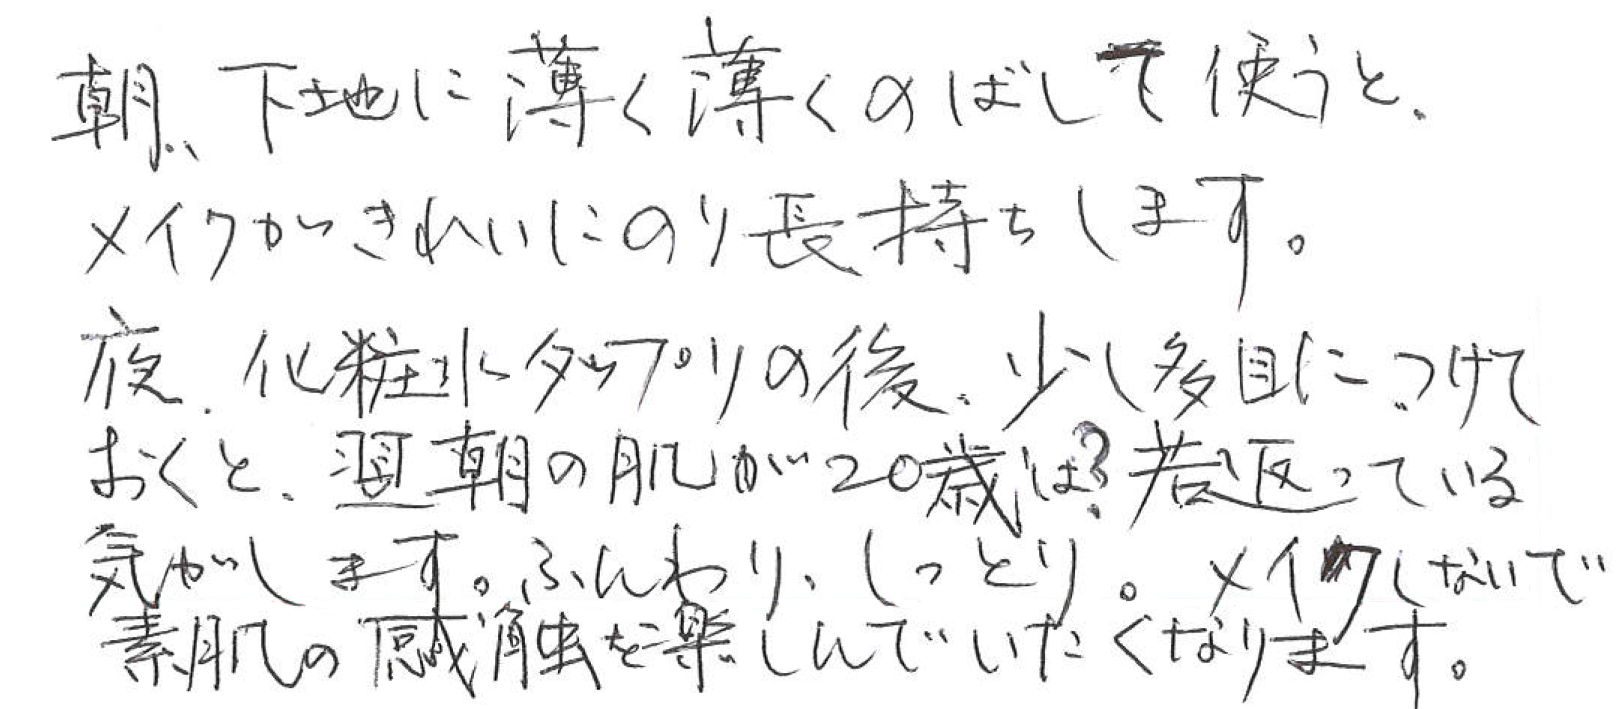 朝、下地に薄く薄くのばして使うと、
メイクがきれいにのり長持ちします。
夜、化粧水タップリの後、少し多目につけて
おくと、翌朝の肌が20歳は?若返っている
気がします。ふんわり、しっとり。メイクしないで
素肌の感触を楽しんでいたくなります。